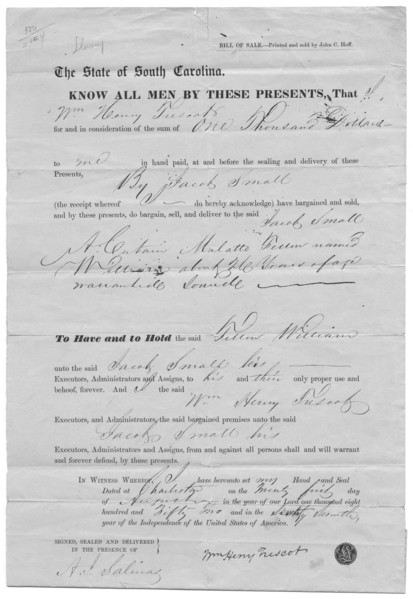 Slavery
BILL OF SALE.—Printed and sold by John C. Hoff.
The State of South Carolina.
KNOW ALL MEN BY THESE PRESENTS, That I
Wm Henry Trescot
for and in consideration of the sum of One Thousand Dollars
to me in hand paid, at and before the sealing and delivery of these
Presents,
By Jacob Small
(the receipt whereof I do hereby acknowledge) have bargained and sold,
and by these presents, do bargain, sell, and deliver to the said
Jacob Small
A Certain Mulatto Fellow named
William about 26 Years of age
warranted Sound
To Have and to Hold the said Fellow William
unto the said Jacob Small his
Executors, Administrators and Assigns, to his and their only proper use and
behoof, forever. And I the said
Wm Henry Trescot
Executors, and Administrators, the said bargained premises unto the said
Jacob Small his
Executors, Administrators and Assigns, from and against all persons shall and will warrant
and forever defend, by these presents.
IN WITNESS WHEREOF, I have hereunto set my Hand and Seal
Dated at Charleston on the Twenty first day
of in the year of our Lord one thousand eight
hundred and Fifty Two and in the Seventy Seventh
year of the Independence of the United States of America.
SIGNED, SEALED AND DELIVERED
IN THE PRESENCE OF
Wm Henry Trescot
A. J. Salinas